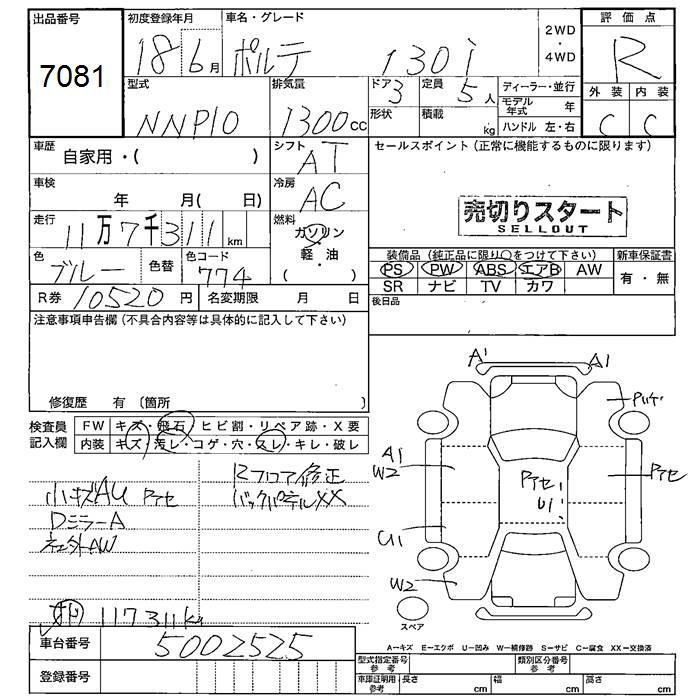 出品番号 初度登録年月 車名・グレード 2WD・4WD 評価点
7081 18 6月 ポルテ 130i R
型式 排気量 ドア 3 定員 5人 ディーラー・並行 外装 内装
NNP10 1300cc 形状 積載 kg モデル年式 年 C C
ハンドル 左・右
車歴 自家用・( ) シフト AT セールスポイント(正常に機能するものに限ります)
車検 年 月( 日) 冷房 AC
売切りスタート
SELLOUT
走行 11万7千311km 燃料 ガソリン・軽・油( )
色 ブルー 色替 色コード 774
装備品(純正品に限り○をつけて下さい) 新車保証書
PS PW ABS エアB AW 有・無
SR ナビ TV カワ
R券 10520円 名変期限 月 日 後日品
注意事項申告欄(不具合内容等は具体的に記入して下さい)
修復歴 有 〔箇所 〕
検査員記入欄 FW キズ・飛石・ヒビ割・リペア跡・X要
内装 キズ・汚レ・コゲ・穴・スレ・キレ・破レ
Rフロア修正
バックパネルXX
小キズAU
DミラーA
社外AW
117311km
A' A1
A1
W2
U1
W2
U1
スペア
A―キズ E―エクボ U―凹み W―補修跡 S―サビ C―腐食 XX―交換済
車台番号 5002525
登録番号
型式指定番号 参考 類別区分番号 参考
車庫証明用 参考 長さ cm 幅 cm 高さ cm